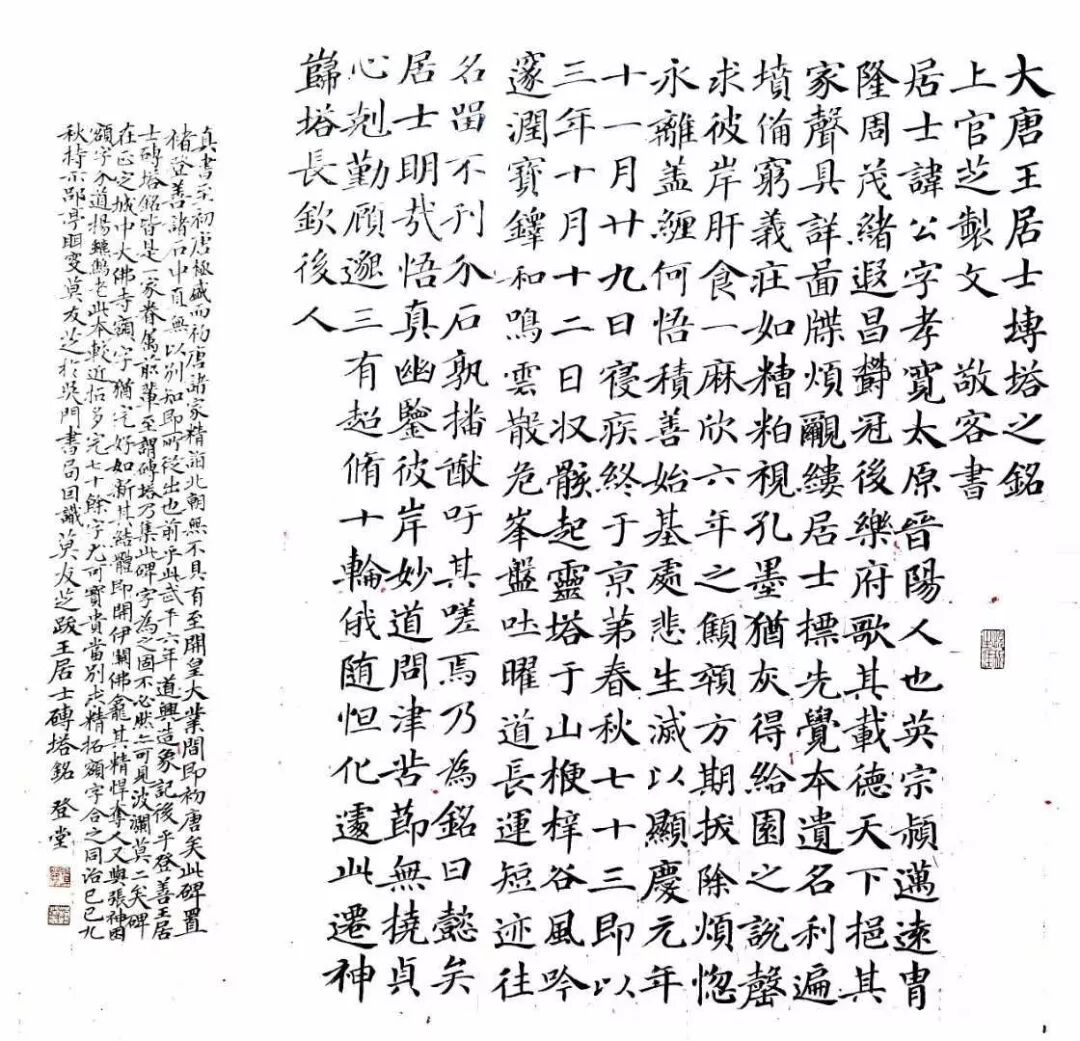 大唐王居士塼塔之銘
上官芝製文 敬客書
居士諱公字孝寛太原晉陽人也英宗頴邁遠冑
隆周茂緒遐昌欝冠後樂府歌其載德天下挹其
家聲具詳啚牒煩覼縷居士標先覺本遺名利遍
墳倫窮義疰如糟粕視孔墨猶灰得給園之說罄
求彼岸肝食一麻欣六年之顦顇方期拔除煩惚
永離盖纏何悟積善始基處悲生滅以顯慶元年
十一月廿九日寑疾終于京第春秋七十三即以
三年十月十二日収骸起靈塔于山楩梓谷風吟
邃澗寶鐸和鳴雲散危峯盤吐曜道長運短迹往
名留不刊介石孰播猷吁其嗟焉乃為銘曰懿矣
居士明哉悟真幽鑒彼岸妙道問津苦節無撓貞
心剋勤顧邈三有超脩十輪俄随怛化遽此遷神
歸塔長欽後人
真書至初唐極盛而初唐諸家精詣北朝無不具有至開皇大業間即初唐矣此碑置
褚登善諸石中直無以別知即所從出也前乎此武平六年道興造象記後乎登善王居
士磚塔銘皆是一家眷屬輩至謂磚塔乃集此碑字為之固不必然亦可見波瀾莫二矣碑
在正定城中大佛寺額字猶完好如新其結體即開伊闕佛龕其精悍奪人又與張神冏
額字分道揚鑣此本較近拓多完七十餘字尤可寶貴當別求精拓額字合之同治己巳九
秋持示郘亭眲叟莫友芝於吳門書局因識 莫友芝跋王居士磚塔銘 登堂